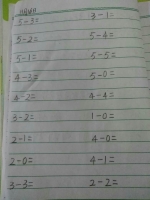 5-3= 3-1=
5-2= 5-4=
5-1= 5-5=
4-3= 5-0=
4-2= 4-4=
3-2= 1-0=
2-1= 4-0=
2-0= 4-1=
3-3= 2-2=